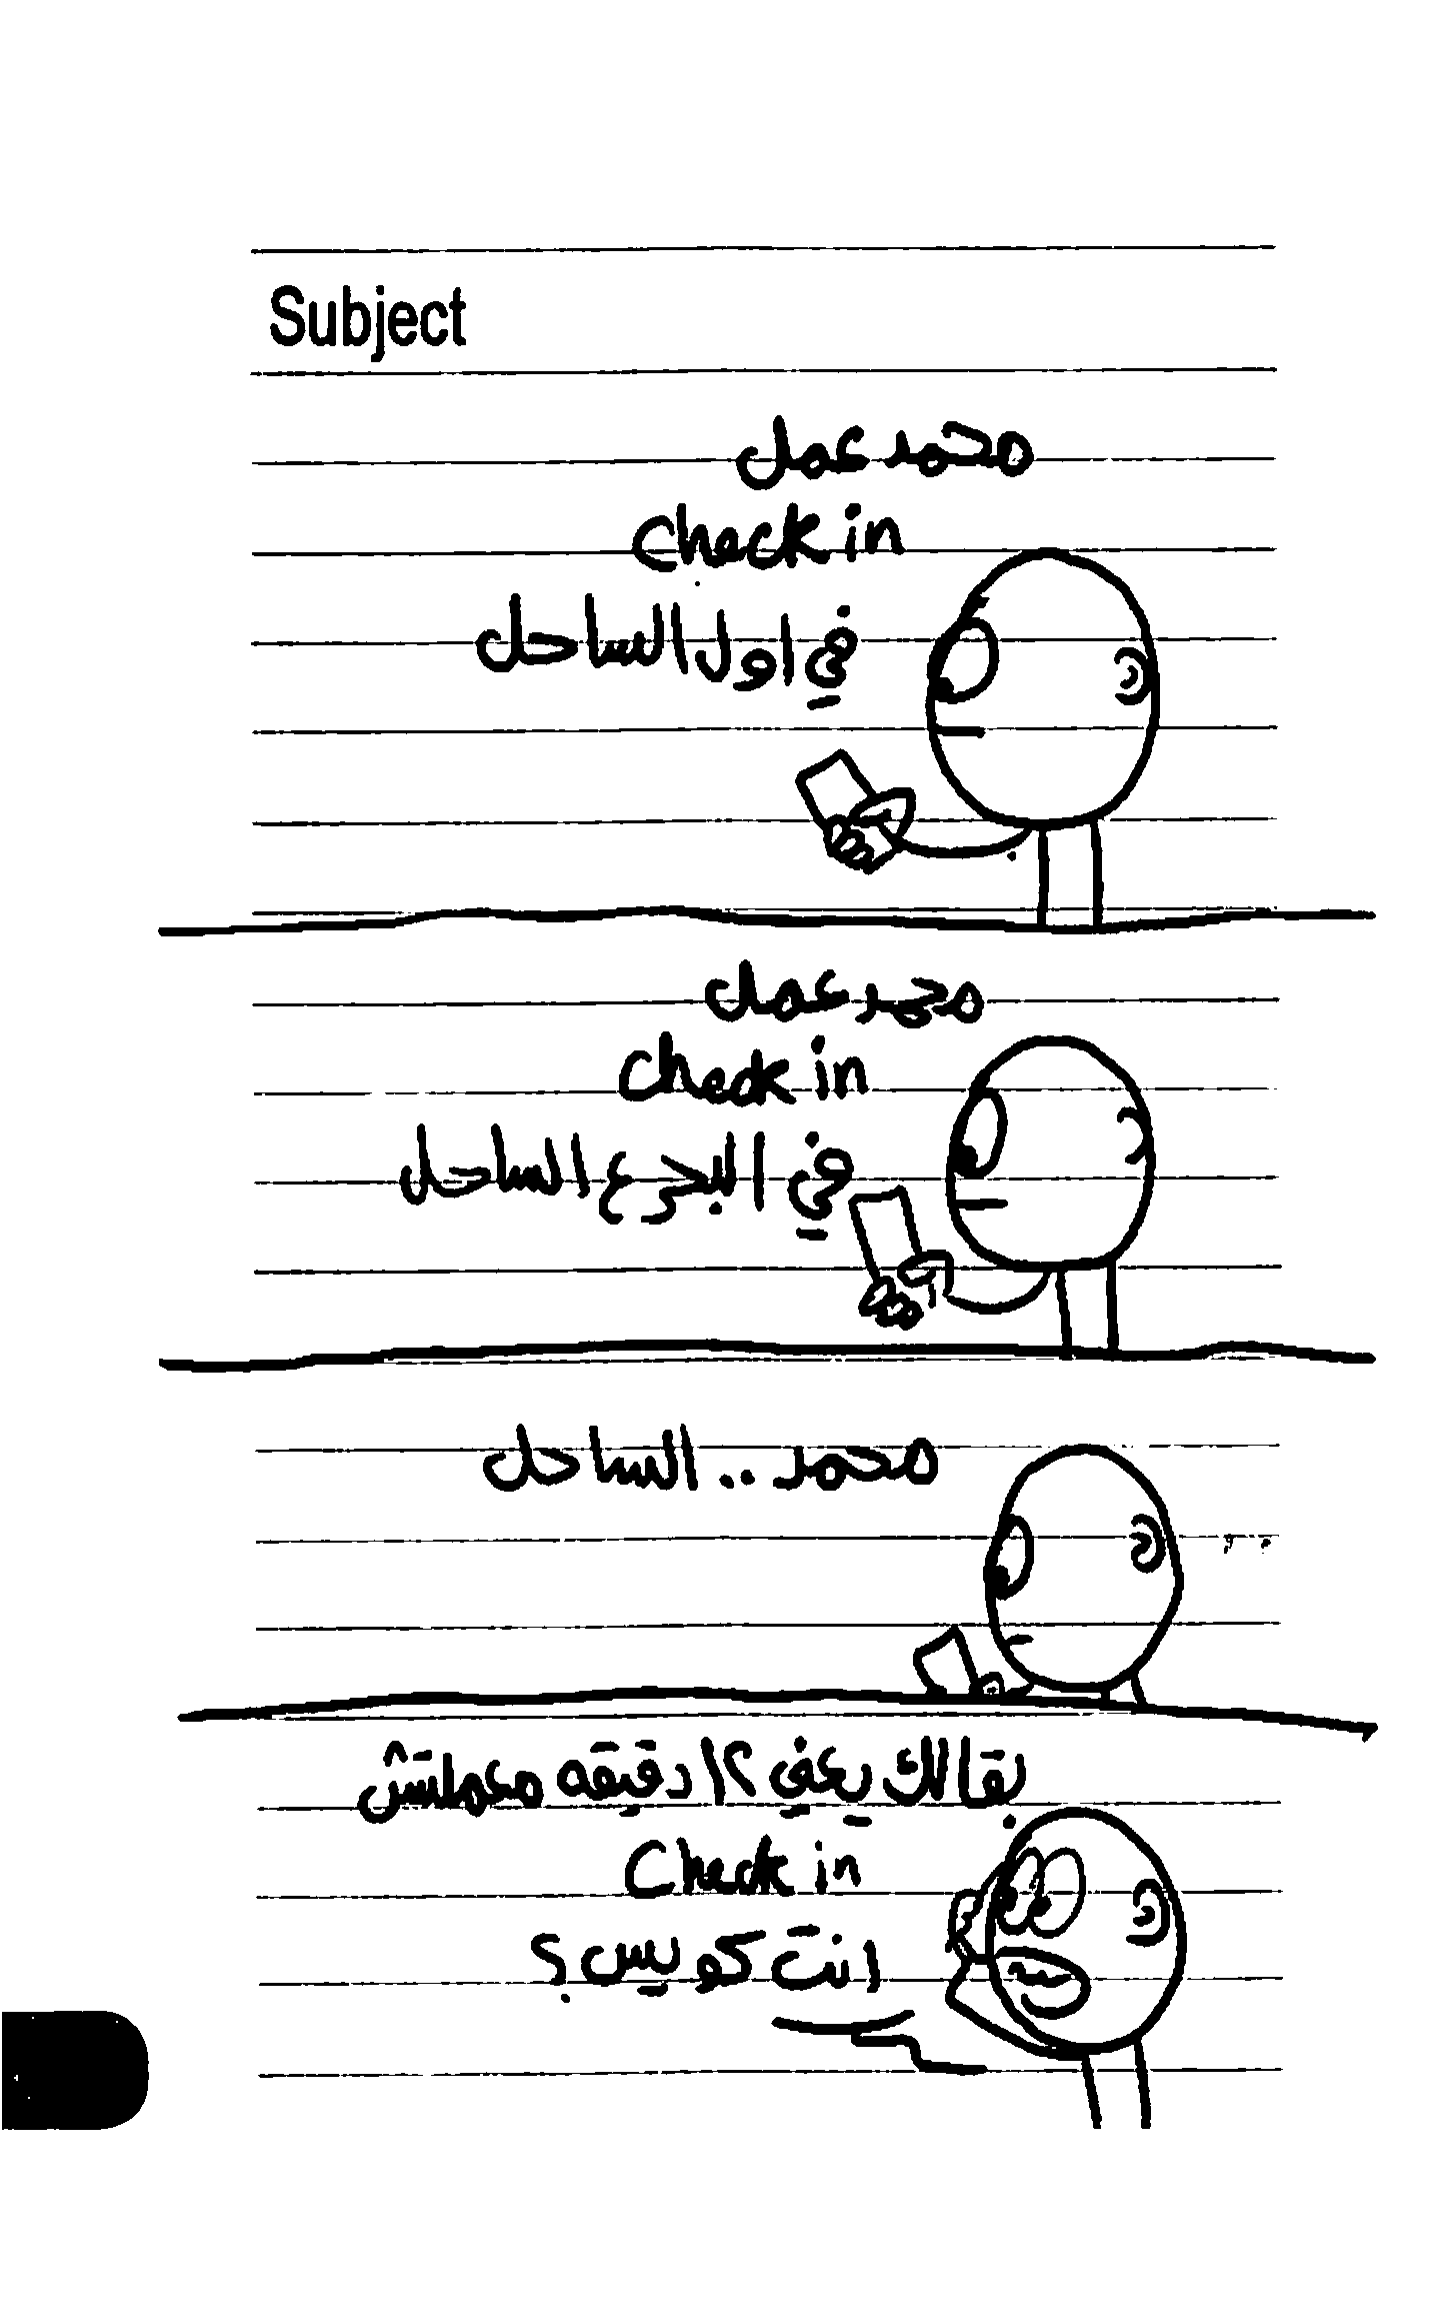 Subject
محمد عمل
Check in
في اول الساحل
محمد عمل
Check in
في البحر ع الساحل
محمد .. الساحل
بقالك يعني ١٢ دقيقه معملتش
Check in
انت كويس؟